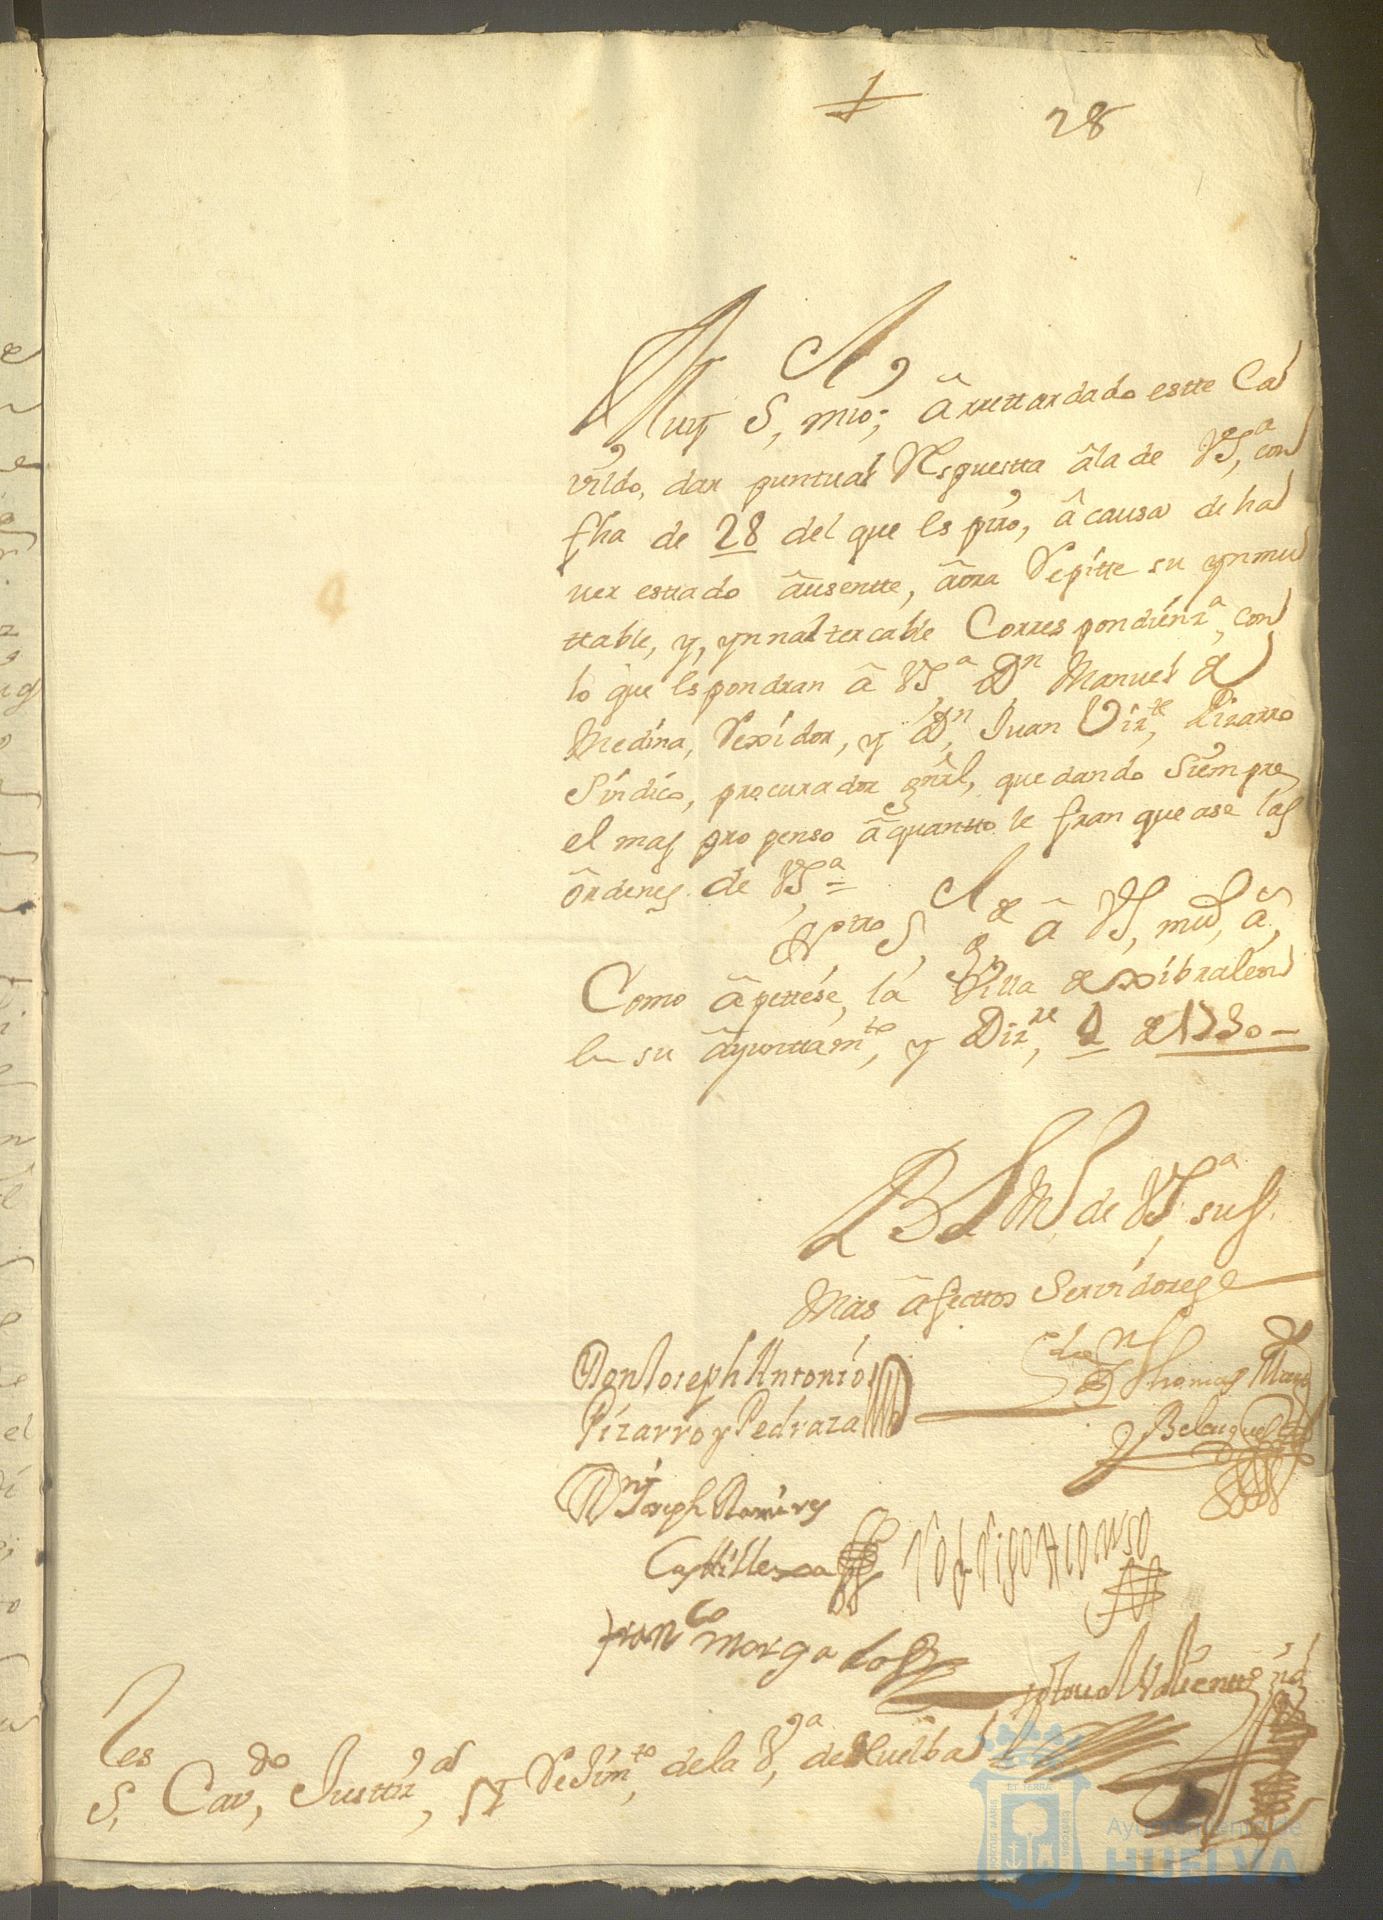 28
Muy S.r mio; â rrettardado estte Ca
vildo, dar puntual Respuestta âla de VS.a, con
fha de 28 del que es pi.ro, â causa de ha
ver estado âusentte, âora Repitte su ynmu
ttable, y, ynnaltercable Correspondienz.a, con
lo que espondran â VS.a D.n Manuel de
Medina, Rexidor, y D.n Juan Viz.te Pizarro
Síndico, procurador gnrl, quedando siempre
el mas propenso â quantto le franquease las
ôrdenes de VS.a =
N.ttro S.r g.de â VS, mu.s a.s,
Como âpettese, la Villa de Xibraleon
en su âyunttam.to, y Diz.re, 2 de 1730 =
BLM de VS.a sus
Mas âfecttos Servidores
Don Joseph Antonio
Pizarro y Pedraza
Ldo D.n Thomas
y Belazquez
D.n Joseph Ramires
Castillexa
Rodrigo Alonso
Fran.co Morgado
Valientte
S.res Cav.do, Justtiz.a, y Rejim.to, de la V.a, de Huelba
Ayuntamiento de
HUELVA